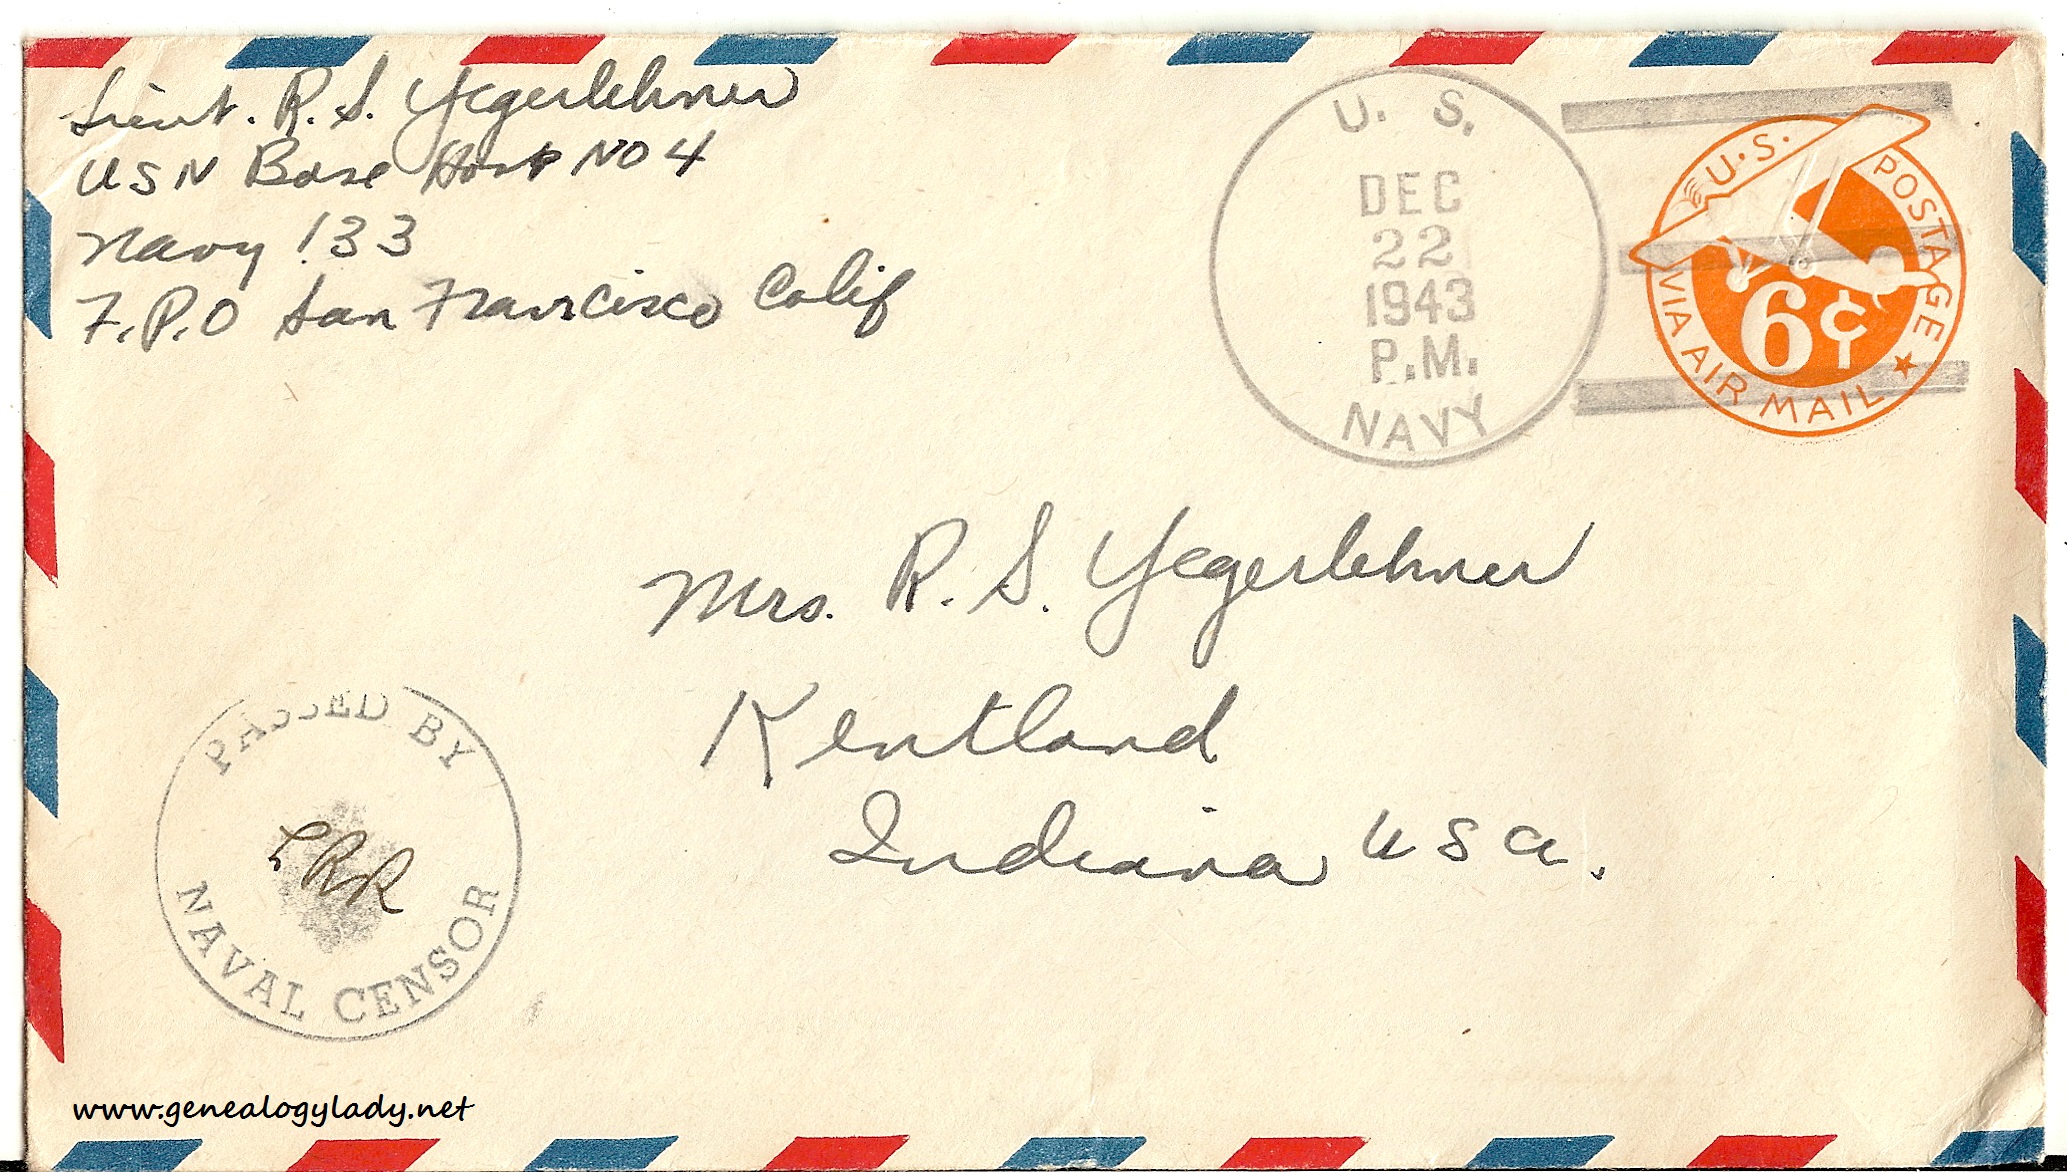 Lieut. R. S. Yegerlehner
USN Base Hosp NO 4
Navy 133
F.P.O San Francisco Calif
U. S.
DEC
22
1943
P.M.
NAVY
U.S. POSTAGE
6¢
VIA AIR MAIL
Mrs. R. S. Yegerlehner
Kentland
Indiana USA.
PASSED BY
LRR
NAVAL CENSOR
www.genealogylady.net